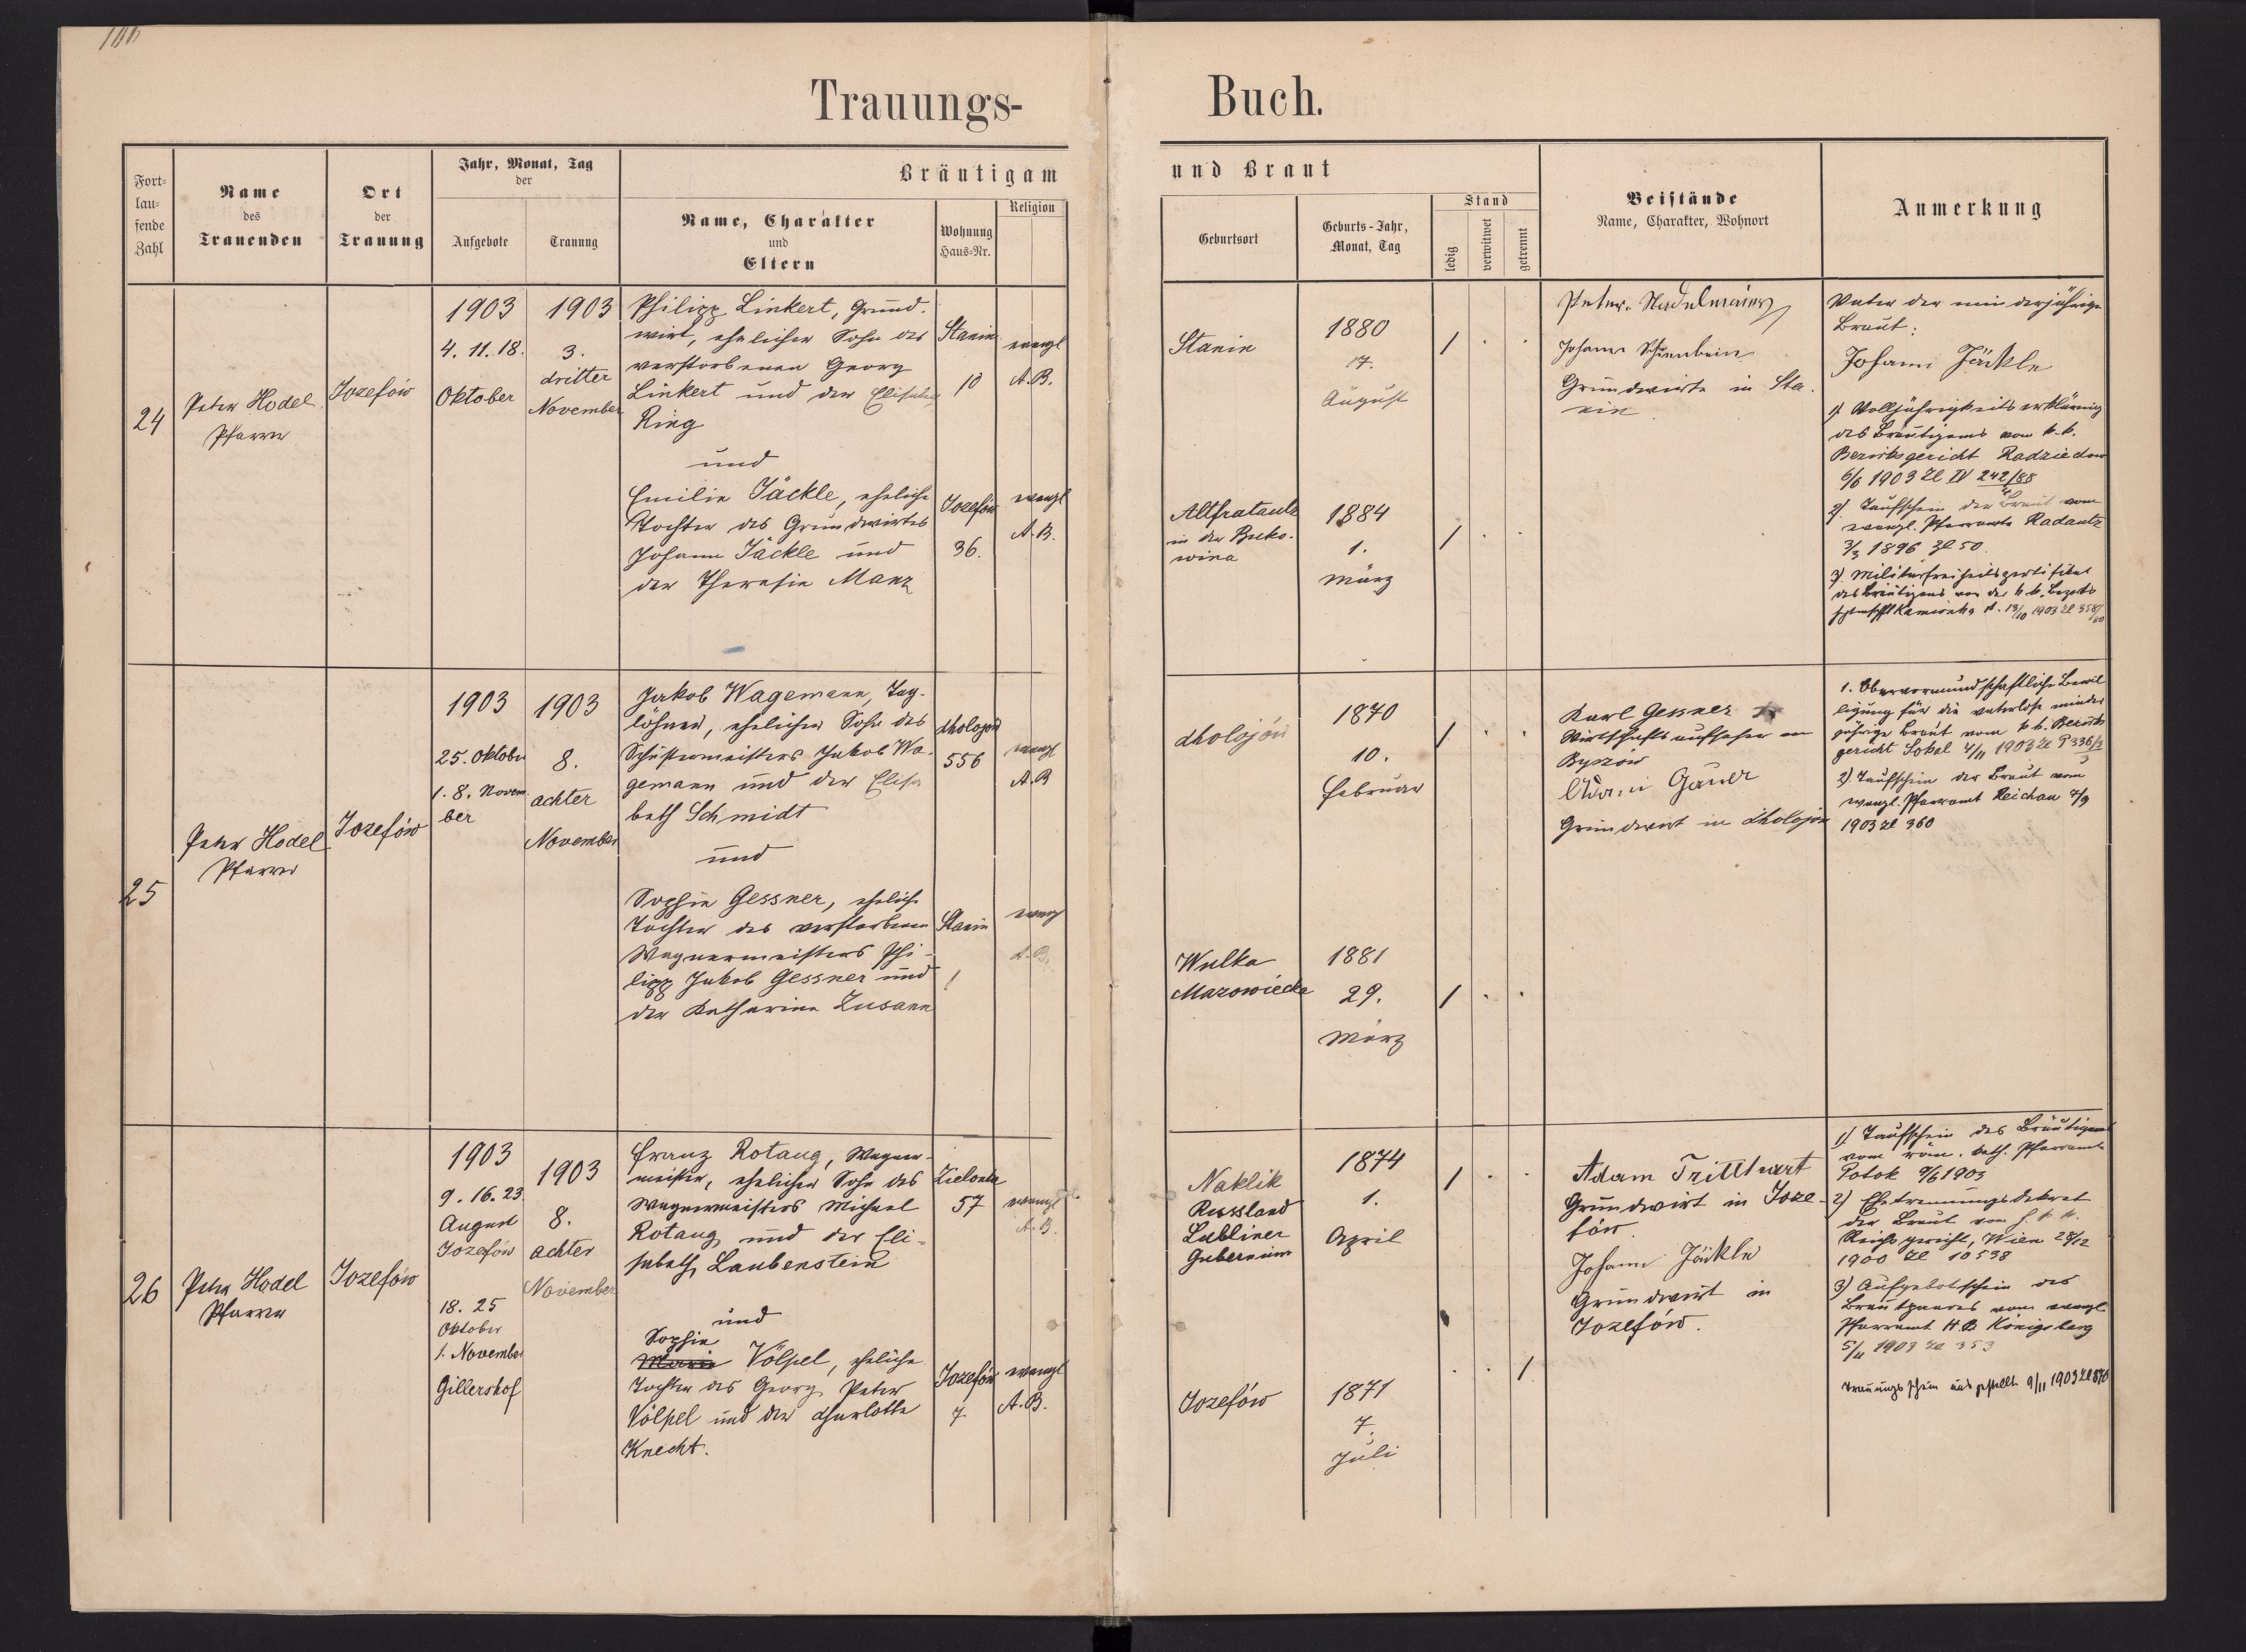 Trauungs-
Buch.
Fort-
lau-
fende
Zahl
Name
des
Trauenden
Ort
der
Trauung
Jahr, Monat, Tag
der
Aufgebote
Trauung
Bräutigam
Name, Charakter
und
Eltern
Wohnung
Haus-Nr.
Religion
und Braut
Geburtsort
Geburts-Jahr,
Monat, Tag
Stand
ledig
verwitwet
getrennt
Beistände
Name, Charakter, Wohnort
Anmerkung
24
Peter Hodel
Pfarrer
Jozefów
1903
4. 11. 18.
Oktober
1903
3.
dritter
November
Philipp Linkert, Grund-
wirt, ehelicher Sohn des
verstorbenen Georg
Linkert und der Elisabeth
Ring
und
Emilie Jäckle, eheliche
Tochter des Grundwirtes
Johann Jäckle und
der Theresia Manz
Stanin
10
evangl
A.B.
Jozefów
36.
evangl
A.B.
Stanin
1880
17.
August
/
Altfratautz
in der Buko-
wina
1884
1.
März
/
Peter
Johann Schienbein
Grundwirte in Sta-
nin
Vater der minderjährigen
Braut:
Johann Jäckle
1) Volljährigkeitserklärung
des Bräutigams vom k.k.
Bezirksgericht Radziechow
6/6 1903 Zl IV 242/88
2) Taufschein der Braut vom
evangl. Pfarramte Radautz
3/3 1896 Zl 50.
3) Militärfreiheitszertifikat
des Bräutigams von der k.k. Bezirks
Kamionka d. 13/10 1903 Zl
25
Peter Hodel
Pfarrer
Jozefów
1903
25. Oktober
1. 8. Novem-
ber
1903
8.
achter
November
Jakob Wagemann, Tag-
löhner, ehelicher Sohn des
Schustermeisters Jakob Wa-
gemann und der Elisa-
beth Schmidt
und
Sophie Gessner, eheliche
Tochter des verstorbenen
Wagnermeisters Phi-
lipp Jakob Gessner und
der Katharina Zusann
Cholojów
556
evangl
A.B
Stanin
1
evang
A.B.
Cholojów
1870
10.
Februar
/
Wulka
Mazowiecka
1881
29.
März
/
Karl Gessner
Wirtschaftsaufseher in
Byszów
Gauer
Grundwirt in Cholojów
1. Obervormundschaftliche Bewil
ligung für die vaterlose minder
jährige Braut vom k.k. Bezirks
gericht Sokal 4/11 1903 Zl P 336/3
2). Taufschein der Braut vom
evangl. Pfarramt Reichau 7/9
1903 Zl 360
26
Peter Hodel
Pfarrer
Jozefów
1903
9. 16. 23.
August
Jozefów
18. 25
Oktober
1. November
Gillershof
1903
8.
achter
November
Franz Rotaug, Wagner-
meister, ehelicher Sohn des
Wagnermeisters Michael
Rotaug und der Eli-
sabeth Laubenstein
und
Sophie
Marie Völpel, eheliche
Tochter des Georg Peter
Völpel und der Charlotte
Knecht.
Zielonka
57
evangl
A.B.
Jozefów
7
evangl
A.B.
Naklik
Russland
Lubliner
Gubernium
1874
1.
April
/
Jozefów
1871
7.
Juli
/
Adam Tritthart
Grundwirt in Joze-
fów.
Johann Jäckle
Grundwirt in
Jozefów.
1) Taufschein des Bräutigams
vom röm. kath. Pfarramte
Potok 9/6 1903
2) Ehetrennungsdekret
der Braut vom k.k.
Wien 28/12
1900 Zl 10538
3) Aufgebotschein des
Brautpaares vom evangl
Pfarramt H.B. Königsberg
5/11 1903 Zl 353
Trauungsschein ausgestellt 9/11 1903 Zl 870